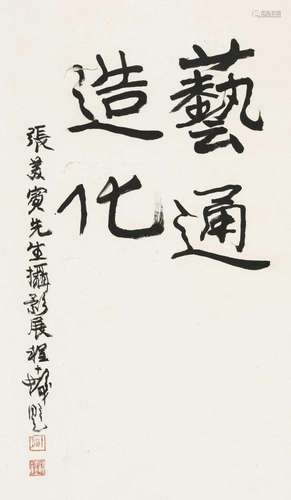 藝通
造化
張美賓先生攝影展程十髮題